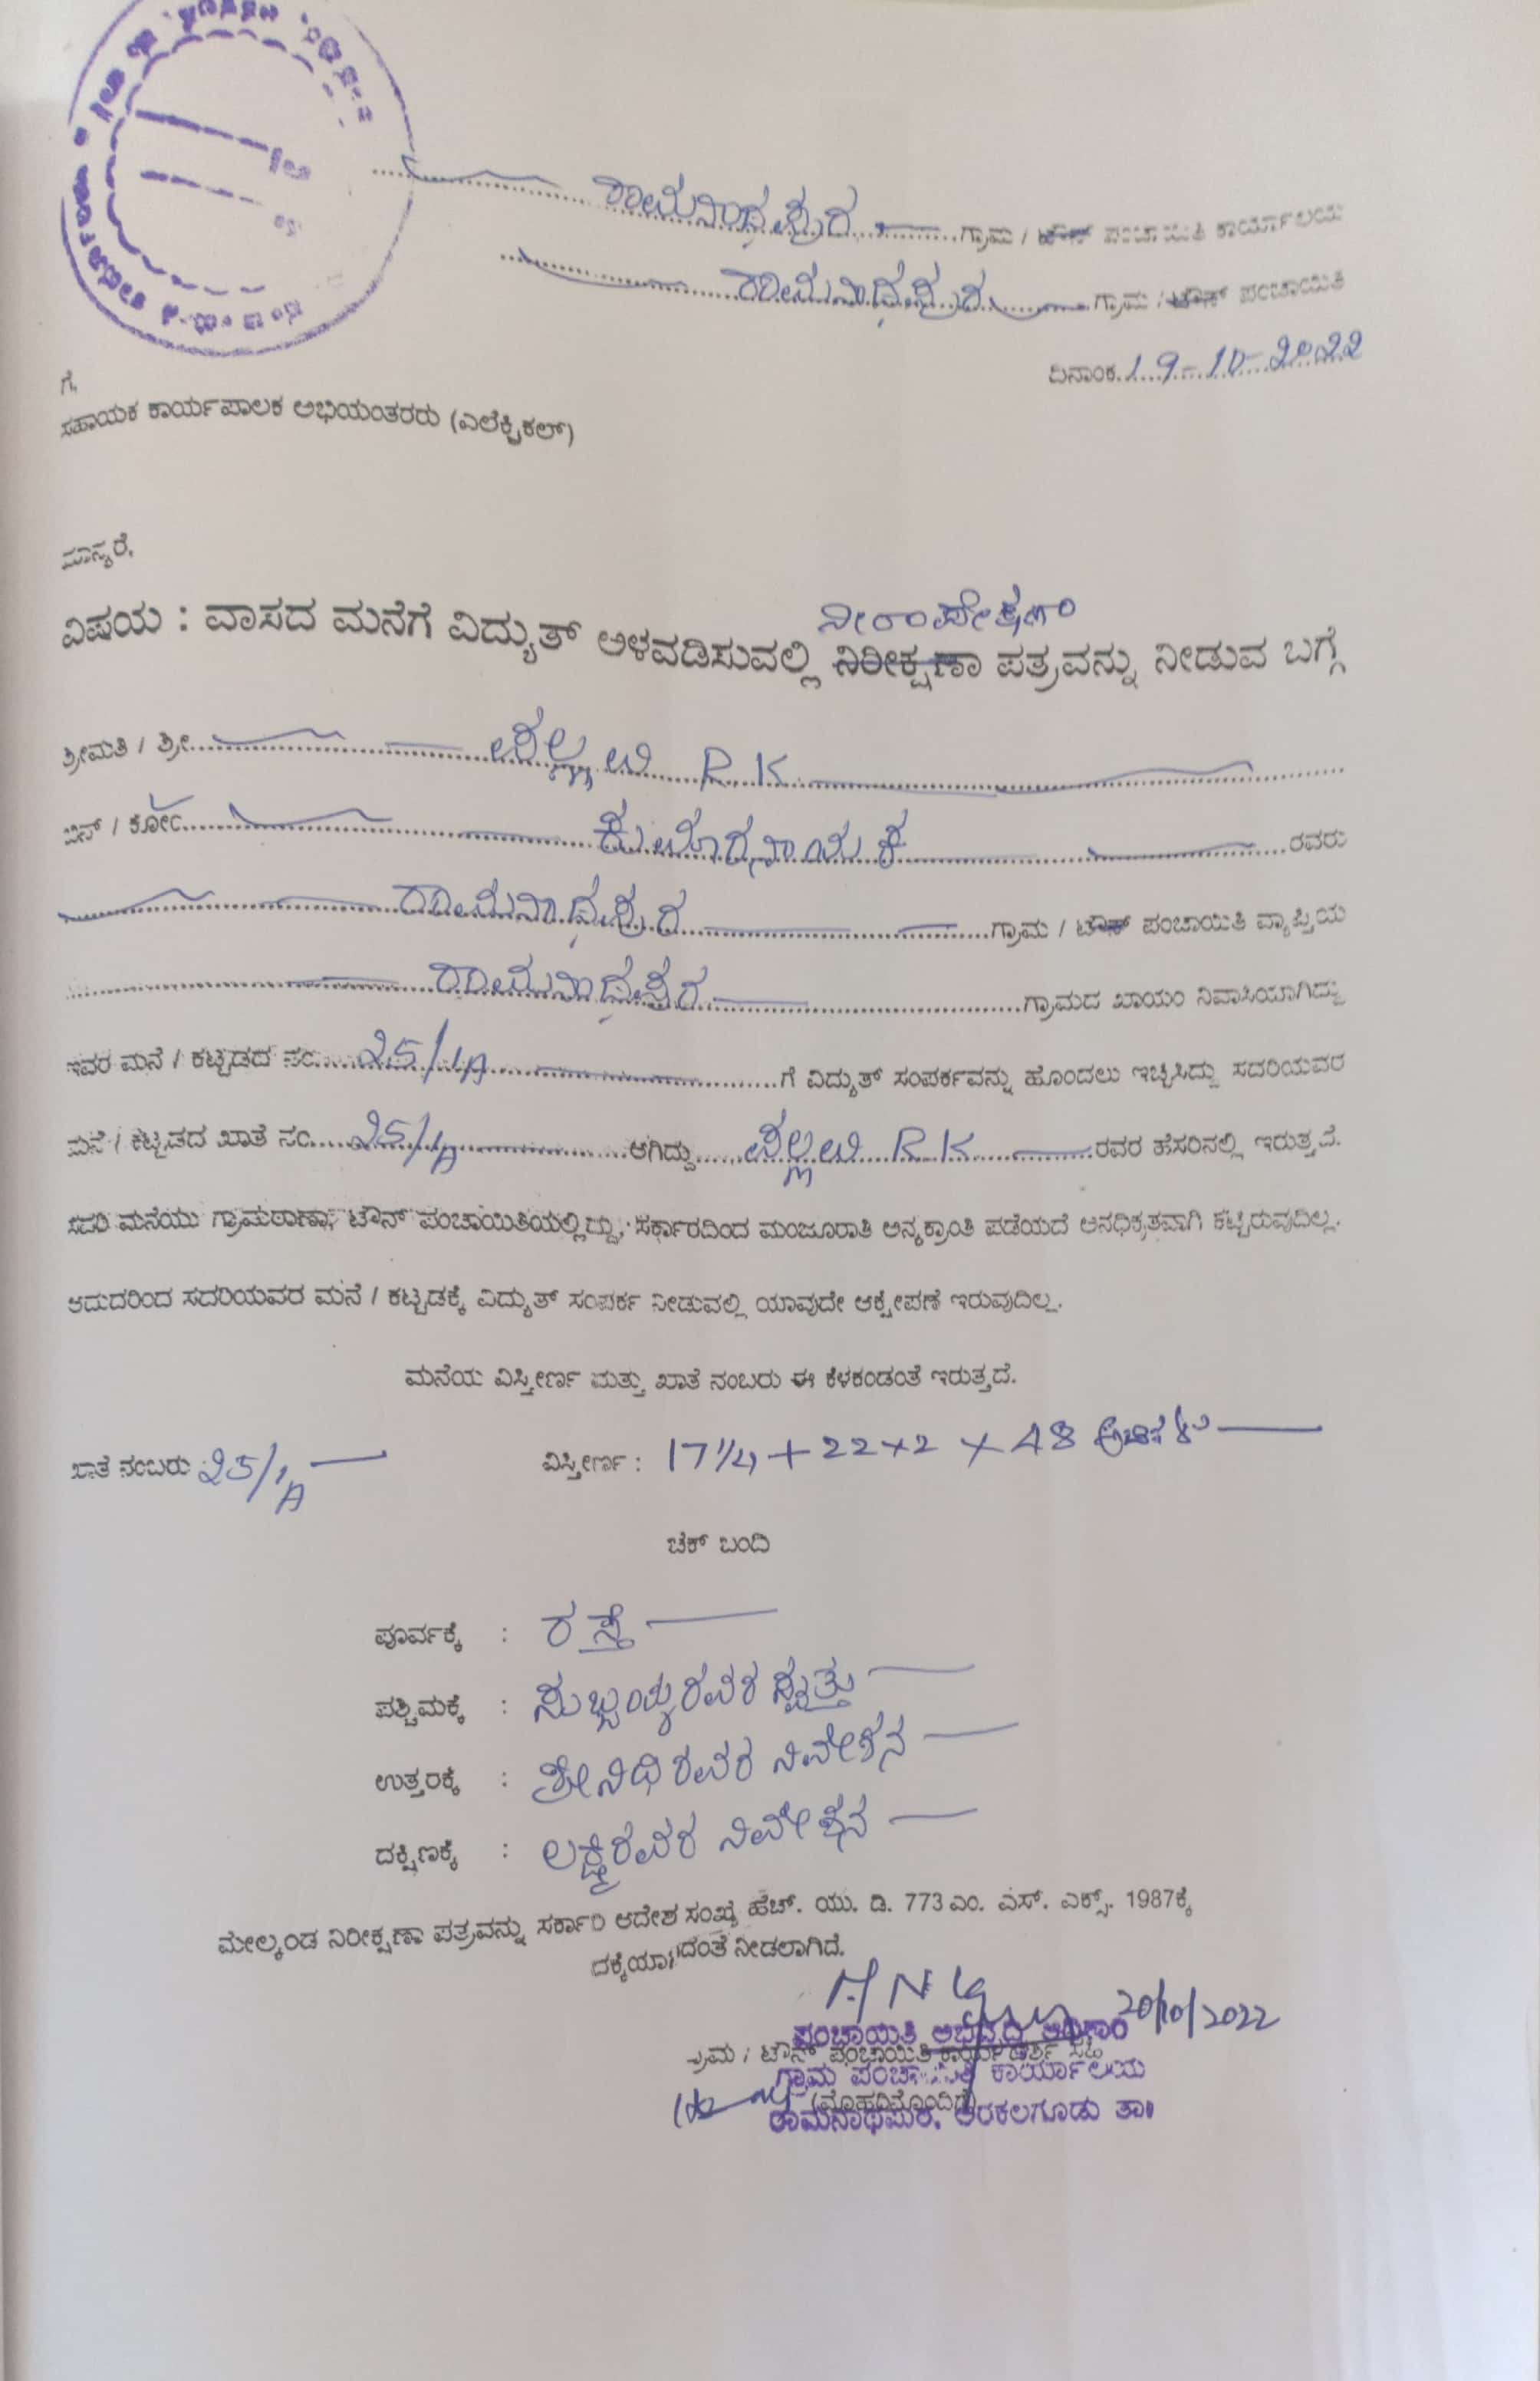 ರಾಮನಾಥಪುರ ಗ್ರಾಮ / ಟೌನ್ ಪಂಚಾಯಿತಿ ಕಾರ್ಯಾಲಯ
ರಾಮನಾಥಪುರ ಗ್ರಾಮ / ಟೌನ್ ಪಂಚಾಯಿತಿ
ದಿನಾಂಕ 19-10-2022
ಗೆ,
ಸಹಾಯಕ ಕಾರ್ಯಪಾಲಕ ಅಭಿಯಂತರರು (ಎಲೆಕ್ಟ್ರಿಕಲ್)
ಮಾನ್ಯರೆ,
ನೀರಾಪೇಕ್ಷಣಾ
ವಿಷಯ : ವಾಸದ ಮನೆಗೆ ವಿದ್ಯುತ್ ಅಳವಡಿಸುವಲ್ಲಿ ನಿರೀಕ್ಷಣಾ ಪತ್ರವನ್ನು ನೀಡುವ ಬಗ್ಗೆ
ಶ್ರೀಮತಿ / ಶ್ರೀ ಪಲ್ಲವಿ R K
ಬಿನ್ / ಕೋಂ ಕುಬೇರನಾಯಕ ರವರು
ರಾಮನಾಥಪುರ ಗ್ರಾಮ / ಟೌನ್ ಪಂಚಾಯಿತಿ ವ್ಯಾಪ್ತಿಯ
ರಾಮನಾಥಪುರ ಗ್ರಾಮದ ಖಾಯಂ ನಿವಾಸಿಯಾಗಿದ್ದು
ಇವರ ಮನೆ / ಕಟ್ಟಡದ ನಂ. 25/1A ಗೆ ವಿದ್ಯುತ್ ಸಂಪರ್ಕವನ್ನು ಹೊಂದಲು ಇಚ್ಛಿಸಿದ್ದು ಸದರಿಯವರ
ಮನೆ / ಕಟ್ಟಡದ ಖಾತೆ ನಂ. 25/1A ಆಗಿದ್ದು ಪಲ್ಲವಿ R K ರವರ ಹೆಸರಿನಲ್ಲಿ ಇರುತ್ತದೆ.
ಸದರಿ ಮನೆಯು ಗ್ರಾಮಠಾಣಾ, ಟೌನ್ ಪಂಚಾಯಿತಿಯಲ್ಲಿದ್ದು, ಸರ್ಕಾರದಿಂದ ಮಂಜೂರಾತಿ ಅನ್ಯಕ್ರಾಂತಿ ಪಡೆಯದೆ ಅನಧಿಕೃತವಾಗಿ ಕಟ್ಟಿರುವುದಿಲ್ಲ.
ಆದುದರಿಂದ ಸದರಿಯವರ ಮನೆ / ಕಟ್ಟಡಕ್ಕೆ ವಿದ್ಯುತ್ ಸಂಪರ್ಕ ನೀಡುವಲ್ಲಿ ಯಾವುದೇ ಆಕ್ಷೇಪಣೆ ಇರುವುದಿಲ್ಲ.
ಮನೆಯ ವಿಸ್ತೀರ್ಣ ಮತ್ತು ಖಾತೆ ನಂಬರು ಈ ಕೆಳಕಂಡಂತೆ ಇರುತ್ತದೆ.
ಖಾತೆ ನಂಬರು 25/1A ವಿಸ್ತೀರ್ಣ : 17 1/4 + 22 ÷ 2 × 48 ಅಡಿಗಳು
ಚೆಕ್ ಬಂದಿ
ಪೂರ್ವಕ್ಕೆ : ರಸ್ತೆ
ಪಶ್ಚಿಮಕ್ಕೆ : ಸುಬ್ಬಯ್ಯರವರ ಸ್ವತ್ತು
ಉತ್ತರಕ್ಕೆ : ಶ್ರೀನಿಧಿರವರ ನಿವೇಶನ
ದಕ್ಷಿಣಕ್ಕೆ : ಲಕ್ಷ್ಮಿರವರ ನಿವೇಶನ
ಮೇಲ್ಕಂಡ ನಿರೀಕ್ಷಣಾ ಪತ್ರವನ್ನು ಸರ್ಕಾರಿ ಆದೇಶ ಸಂಖ್ಯೆ ಹೆಚ್. ಯು. ಡಿ. 773 ಎಂ. ಎಸ್. ಎಕ್ಸ್. 1987ಕ್ಕೆ
ದಕ್ಕೆಯಾಗದಂತೆ ನೀಡಲಾಗಿದೆ.
20/10/2022
ಪಂಚಾಯಿತಿ ಅಭಿವೃದ್ಧಿ ಅಧಿಕಾರಿ
ಗ್ರಾಮ / ಟೌನ್ ಪಂಚಾಯಿತಿ ಕಾರ್ಯದರ್ಶಿ ಸಹಿ
ಗ್ರಾಮ ಪಂಚಾಯಿತಿ ಕಾರ್ಯಾಲಯ
(ಮೊಹರಿನೊಂದಿಗೆ)
ರಾಮನಾಥಪುರ, ಅರಕಲಗೂಡು ತಾ॥